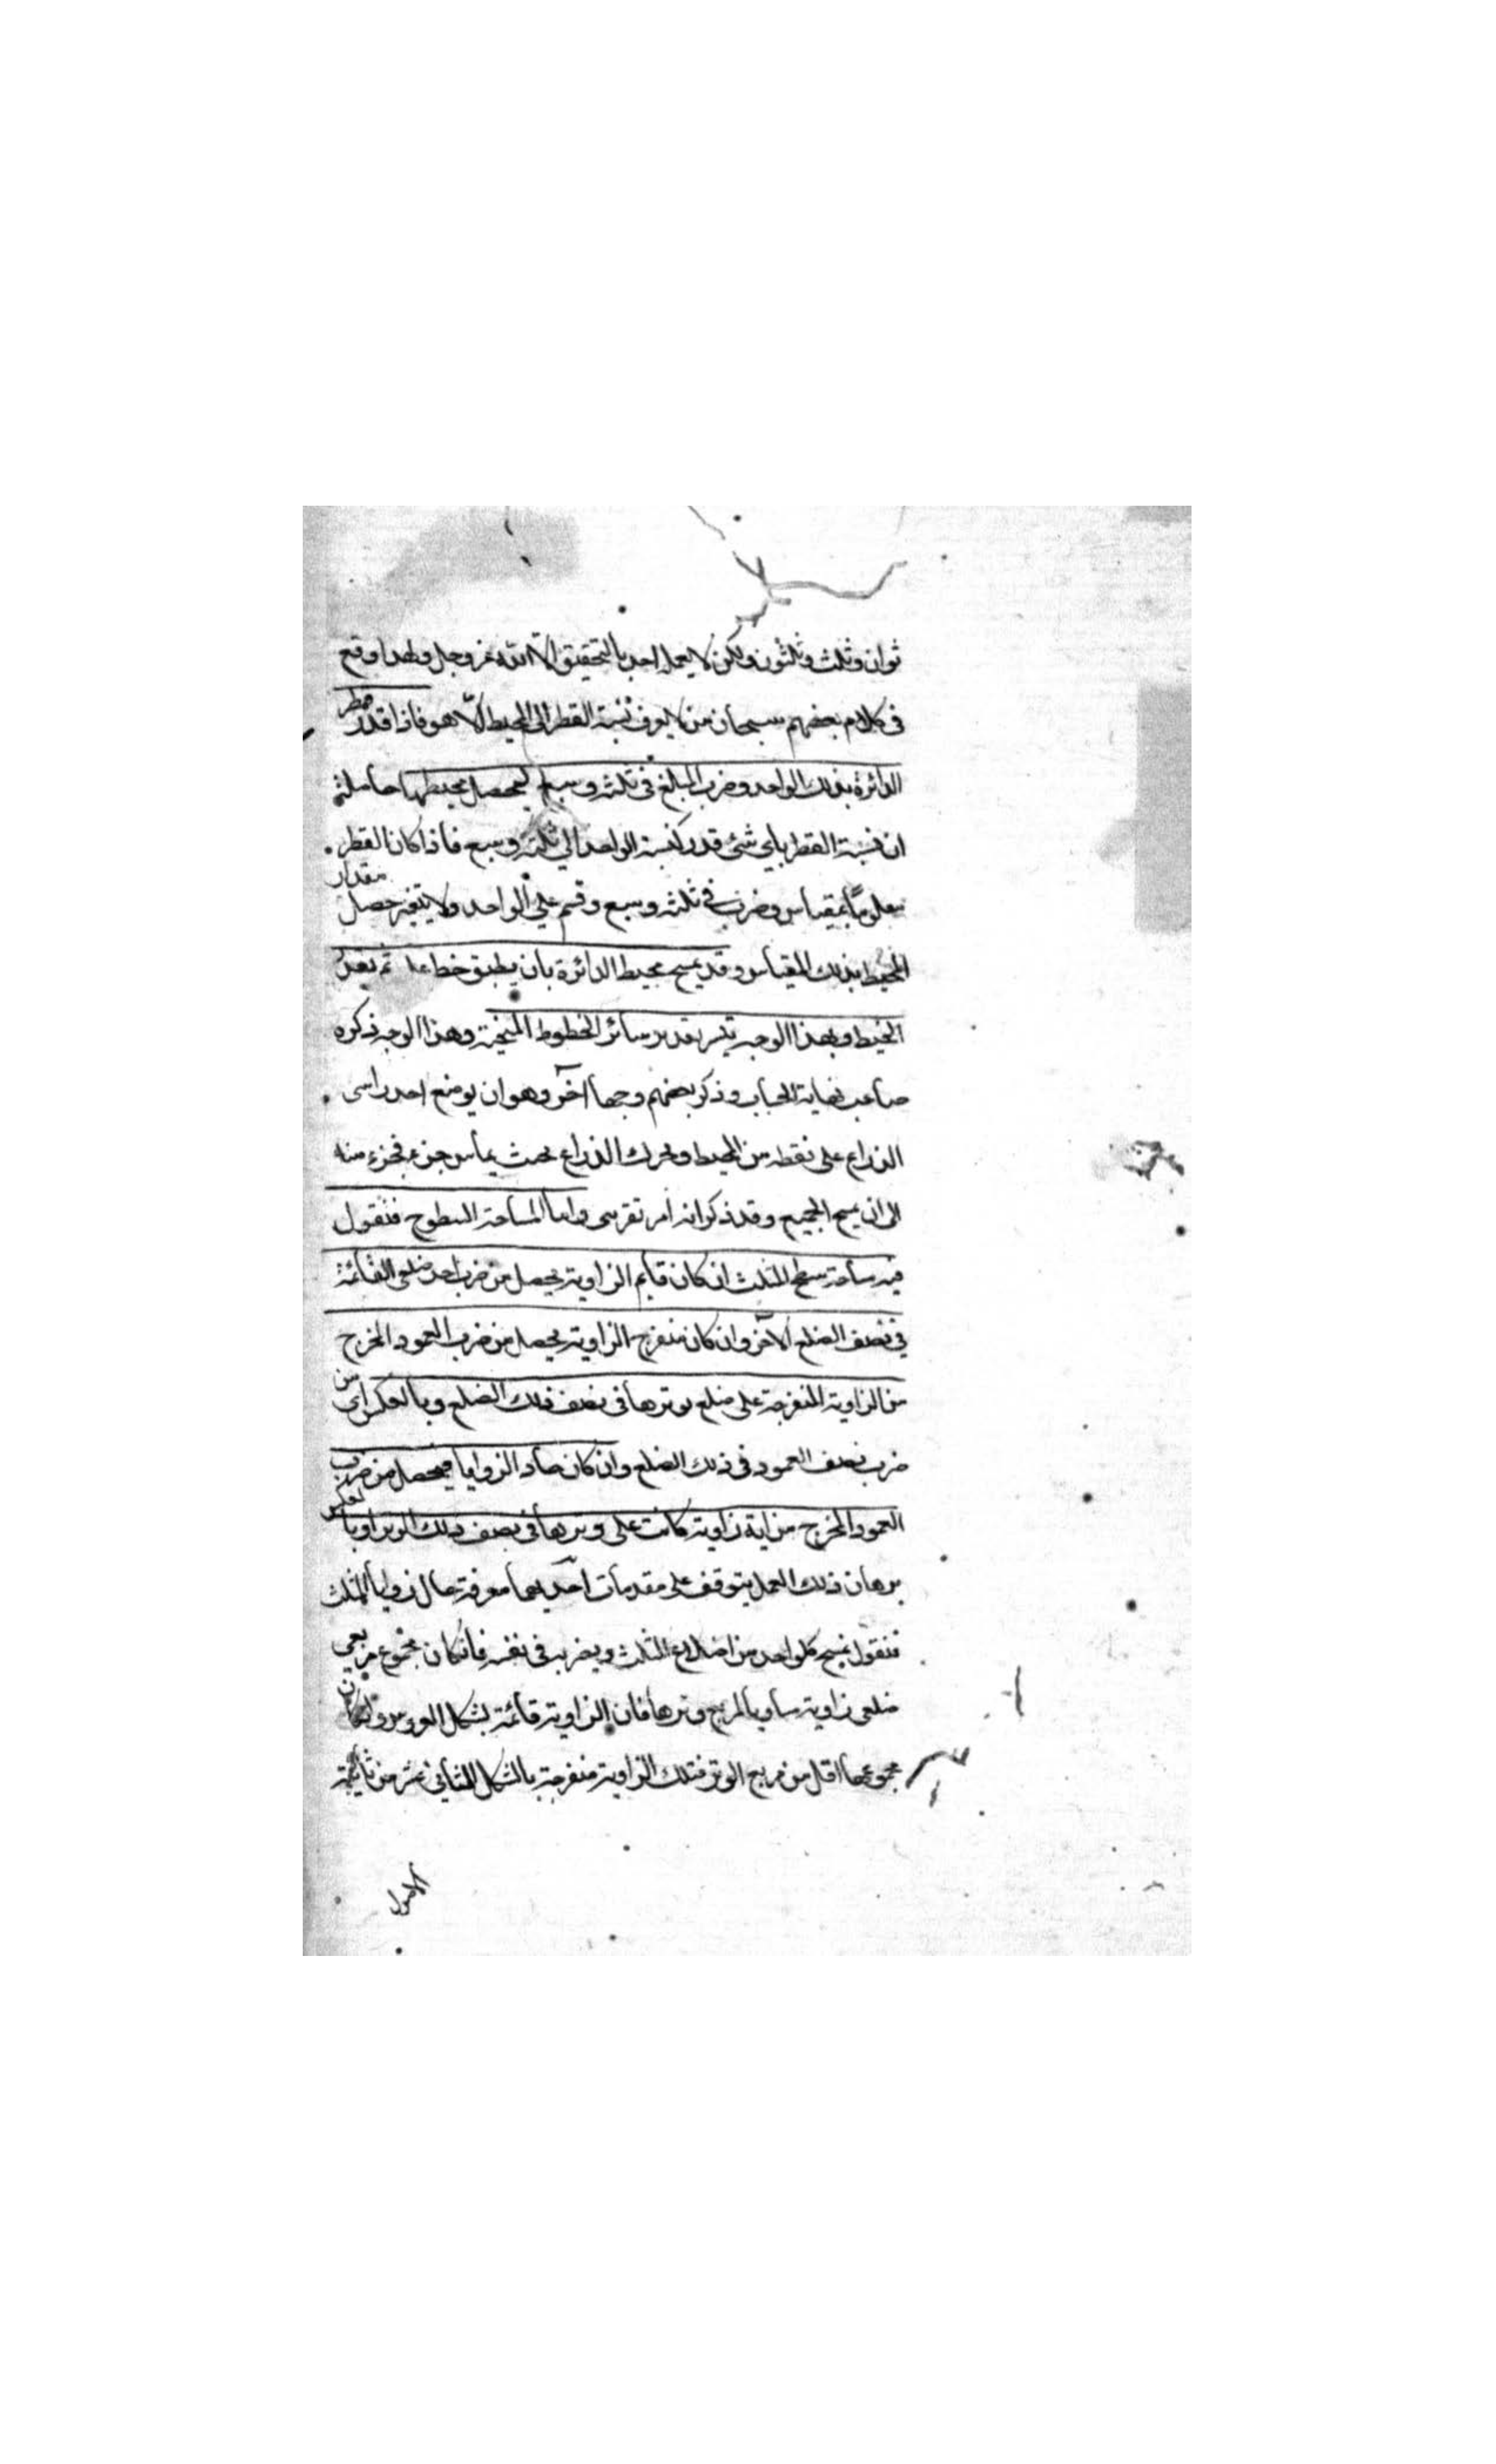 ثوان وثلث وثلثون ولكن لا يعلم احد بالتحقيق الا الله عز وجل ولهذا وقع
فى كلام بعضهم سبحان من لا يعرف نسبة القطر الى المحيط الّا هو فاذا قدر قطر
الدائرة بذلك الواحد وضرب المبلغ فى ثلثة وسبع ليحصل محيطها
ان نسبة القطر باى شئ قدر كنسبة الواحد الي ثلثة وسبع فاذا كان القطر
معلوماً بمقياس وضرب في ثلثة وسبع وقسم علي الواحد ولا يتغير حصل مقدار
المحيط بذلك المقياس وقد يمسح محيط الدائرة بان يطبق خط عليها ثم يقدر
الخيط وبهذا الوجه يتيسر تقدير سائر الخطوط المنحنية وهذا الوجه ذكره
صاحب نهاية الحساب وذكر بعضهم وجها آخر وهو ان يوضع احد راسى
الذراع على نقطة من المحيط ويحرك الذراع بحيث يماس جزء فجزء منه
الى ان يمسح الجميع وقد ذكر انه امر تقريبى واما المساحة السطوح فنقول
فيه مساحة سطح المثلث ان كان قايم الزاوية يحصل من ضرب احد ضلعى القائمة
في نصف الضلع الآخر وان كان منفرج الزاوية يحصل من ضرب العمود المخرج
من الزاوية المنفرجة على ضلع يوترها فى نصف ذلك الضلع وبالعكس اى من
ضرب نصف العمود فى ذلك الضلع وان كان حاد الزوايا فيحصل من ضرب
العمود المخرج من اية زاوية كانت على وترها فى نصف ذلك الوتر او بالعكس
برهان ذلك العمل يتوقف على مقدمات احديهما معرفة حال زوايا المثلث
فنقول نمسح كل واحد من اضلاع المثلث ويضرب فى نفسه فان كان مجموع مربعى
ضلعى زاوية مساويا لمربع وترها فان الزاوية قائمة بشكل العروس وان كان
مجموعهما اقل من مربع الوتر فتلك الزاوية منفرجة بالشكل الثانى عشر من ثانية
الاصول